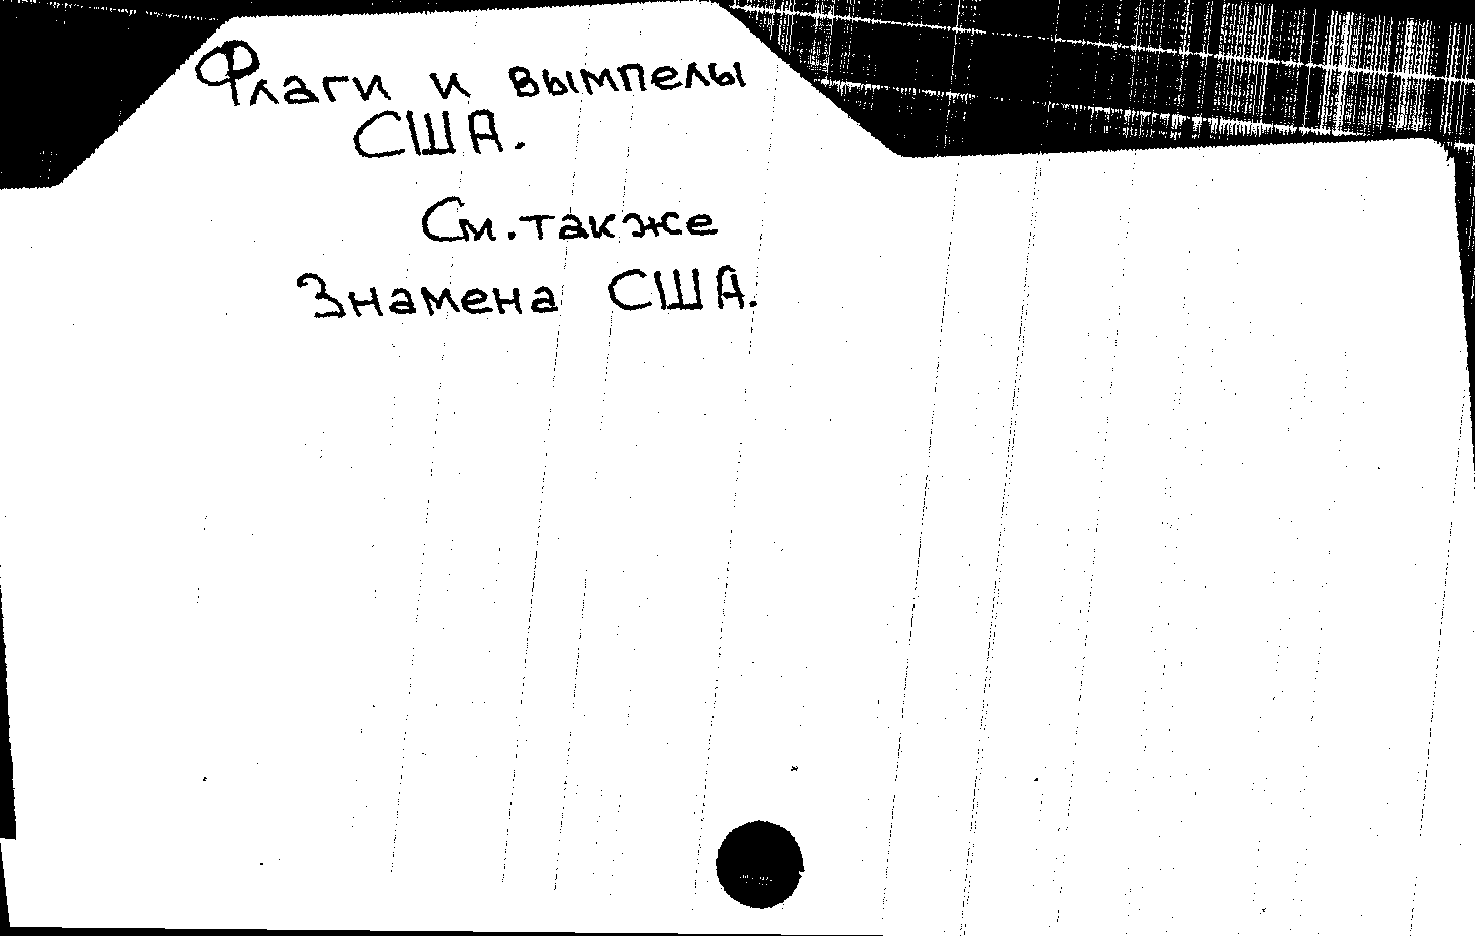 Флаги и вымпелы
США.
См. также
Знамена США.